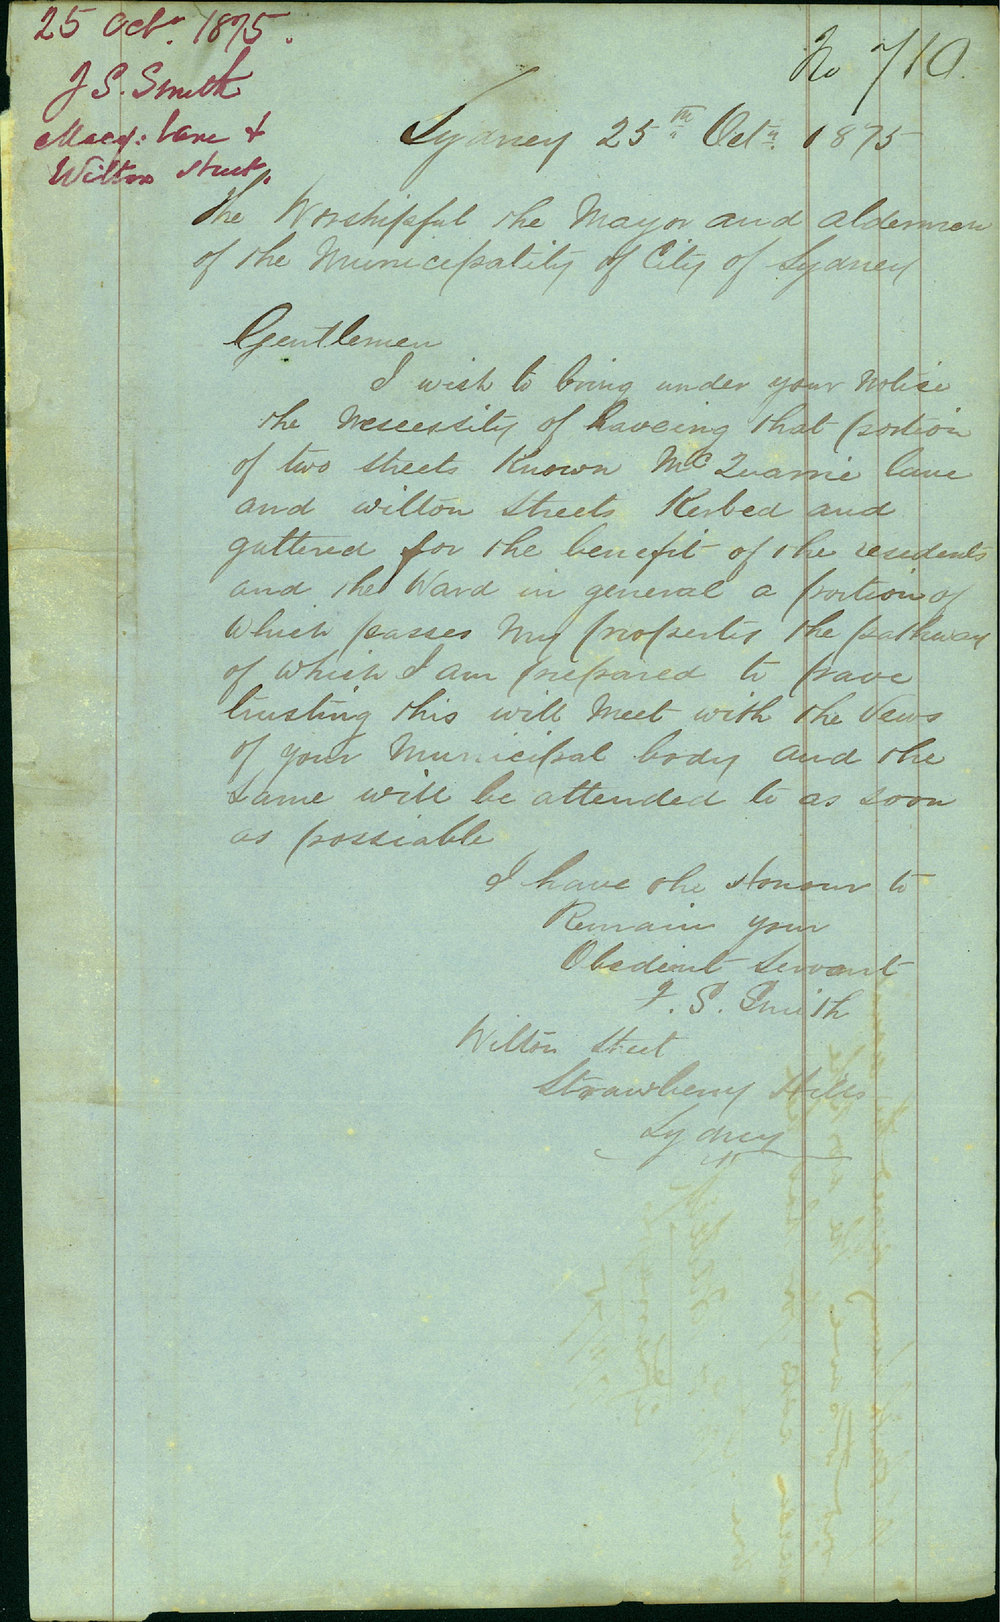 25 Octr. 1875.
J S. Smith
Macq: Lane &
Wilton Street.
No 710.
Sydney 25th Octr. 1875
The Worshipful the Mayor and aldermen
of the Municipality of City of Sydney
Gentlemen
I wish to bring under your Notice
the Nescessity of haveing that portion
of two streets Known McQuarrie lane
and wilton streets Kerbed and
guttered for the benefit of the residents
and the Ward in general a portion of
Which passes My property the pathway
of which I am prepared to pave
trusting this will Meet with the Vews
of your Municipal body and the
Same will be attended to as soon
as possiable
I have the Honour to
Remain your
Obedient Servant
J. S. Smith
Wilton Street
Strawberry Hills
Sydney